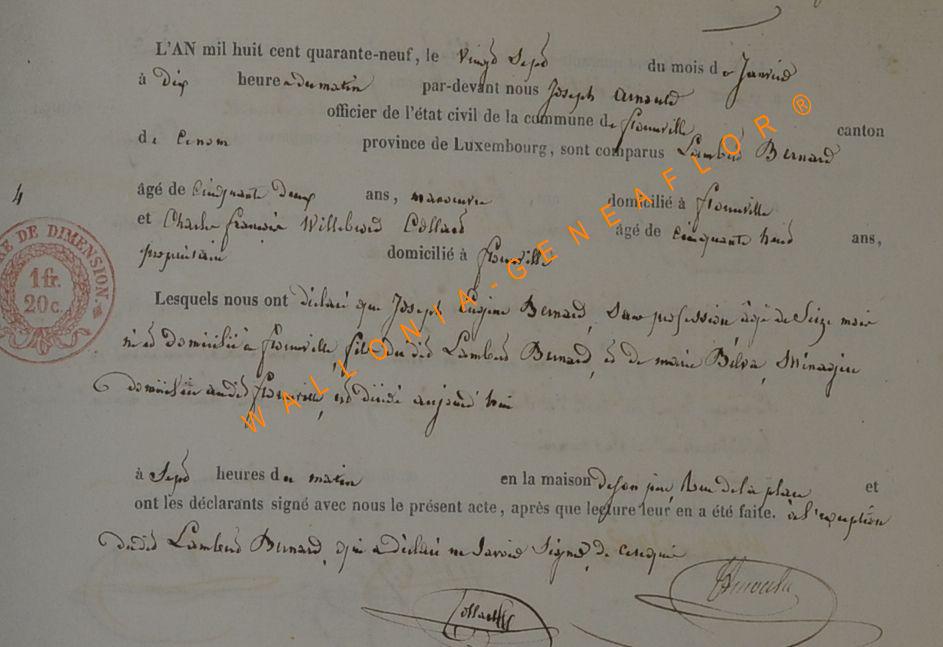 L'AN mil huit cent quarante-neuf, le vingt Sept du mois de Janvier
à dix heures du matin par-devant nous Joseph Arnould
officier de l'état civil de la commune de florenville canton
de Idem province de Luxembourg, sont comparus Lambert Bernard
4
âgé de Cinquante deux ans, manoeuvre domicilié à florenville
et Charles françois Willebrord Collard âgé de Cinquante neuf ans,
propriétaire domicilié à florenville
RE DE DIMENSION.
1 fr.
20 c.
Lesquels nous ont déclaré que Joseph Eugène Bernard, Sans profession âgé de Seize mois
né et domicilié à florenville, fils du dit Lambert Bernard, et de marie Bilva, Ménagère
domiciliée audit florenville, est décédé aujourd'hui
à Sept heures du matin en la maison de son père, Rue de la place et
ont les déclarants signé avec nous le présent acte, après que lecture leur en a été faite. à l'exception
dudit Lambert Bernard, qui a déclaré ne Savoir Signer, de ce requis
Collard
Arnould
WALLONIA-GENEAFLOR ®